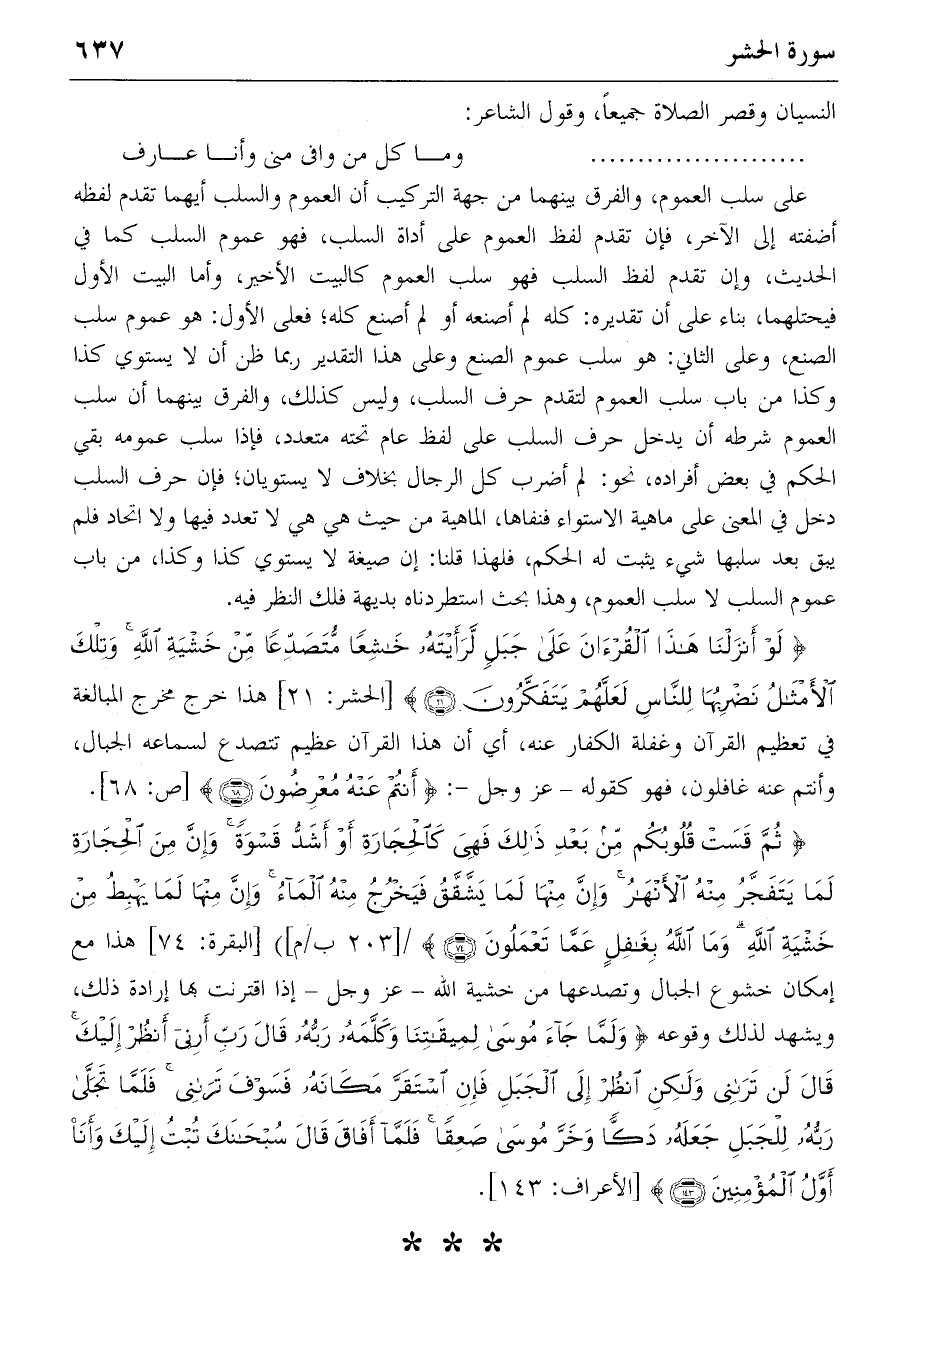 سورة الحشر ٦٣٧
النسيان وقصر الصلاة جميعاً، وقول الشاعر:
....................... ومـــا كل من وافى منى وأنـــا عـــارف
على سلب العموم، والفرق بينهما من جهة التركيب أن العموم والسلب أيهما تقدم لفظه
أضفته إلى الآخر، فإن تقدم لفظ العموم على أداة السلب، فهو عموم السلب كما في
الحديث، وإن تقدم لفظ السلب فهو سلب العموم كالبيت الأخير، وأما البيت الأول
فيحتلهما، بناء على أن تقديره: كله لم أصنعه أو لم أصنع كله؛ فعلى الأول: هو عموم سلب
الصنع، وعلى الثاني: هو سلب عموم الصنع وعلى هذا التقدير ربما ظن أن لا يستوي كذا
وكذا من باب سلب العموم لتقدم حرف السلب، وليس كذلك، والفرق بينهما أن سلب
العموم شرطه أن يدخل حرف السلب على لفظ عام تحته متعدد، فإذا سلب عمومه بقي
الحكم في بعض أفراده، نحو: لم أضرب كل الرجال بخلاف لا يستويان؛ فإن حرف السلب
دخل في المعنى على ماهية الاستواء فنفاها، الماهية من حيث هي هي لا تعدد فيها ولا اتحاد فلم
يبق بعد سلبها شيء يثبت له الحكم، فلهذا قلنا: إن صيغة لا يستوي كذا وكذا، من باب
عموم السلب لا سلب العموم، وهذا بحث استطردناه بديهة فلك النظر فيه.
﴿ لَوْ أَنزَلْنَا هَـٰذَا ٱلْقُرْءَانَ عَلَىٰ جَبَلٍ لَّرَأَيْتَهُۥ خَـٰشِعًا مُّتَصَدِّعًا مِّنْ خَشْيَةِ ٱللَّهِ ۚ وَتِلْكَ
ٱلْأَمْثَـٰلُ نَضْرِبُهَا لِلنَّاسِ لَعَلَّهُمْ يَتَفَكَّرُونَ ٢١ ﴾ [الحشر: ٢١] هذا خرج مخرج المبالغة
في تعظيم القرآن وغفلة الكفار عنه، أي أن هذا القرآن عظيم تتصدع لسماعه الجبال،
وأنتم عنه غافلون، فهو كقوله – عز وجل –: ﴿ أَنتُمْ عَنْهُ مُعْرِضُونَ ٦٨ ﴾ [ص: ٦٨].
﴿ ثُمَّ قَسَتْ قُلُوبُكُم مِّنۢ بَعْدِ ذَٰلِكَ فَهِىَ كَٱلْحِجَارَةِ أَوْ أَشَدُّ قَسْوَةً ۚ وَإِنَّ مِنَ ٱلْحِجَارَةِ
لَمَا يَتَفَجَّرُ مِنْهُ ٱلْأَنْهَـٰرُ ۚ وَإِنَّ مِنْهَا لَمَا يَشَّقَّقُ فَيَخْرُجُ مِنْهُ ٱلْمَآءُ ۚ وَإِنَّ مِنْهَا لَمَا يَهْبِطُ مِنْ
خَشْيَةِ ٱللَّهِ ۗ وَمَا ٱللَّهُ بِغَـٰفِلٍ عَمَّا تَعْمَلُونَ ٧٤ ﴾ /[٢٠٣ ب/م]) [البقرة: ٧٤] هذا مع
إمكان خشوع الجبال وتصدعها من خشية الله – عز وجل – إذا اقترنت بها إرادة ذلك،
ويشهد لذلك وقوعه ﴿ وَلَمَّا جَآءَ مُوسَىٰ لِمِيقَـٰتِنَا وَكَلَّمَهُۥ رَبُّهُۥ قَالَ رَبِّ أَرِنِىٓ أَنظُرْ إِلَيْكَ ۚ
قَالَ لَن تَرَىٰنِى وَلَـٰكِنِ ٱنظُرْ إِلَى ٱلْجَبَلِ فَإِنِ ٱسْتَقَرَّ مَكَانَهُۥ فَسَوْفَ تَرَىٰنِى ۚ فَلَمَّا تَجَلَّىٰ
رَبُّهُۥ لِلْجَبَلِ جَعَلَهُۥ دَكًّا وَخَرَّ مُوسَىٰ صَعِقًا ۚ فَلَمَّآ أَفَاقَ قَالَ سُبْحَـٰنَكَ تُبْتُ إِلَيْكَ وَأَنَا۠
أَوَّلُ ٱلْمُؤْمِنِينَ ١٤٣ ﴾ [الأعراف: ١٤٣].
* * *